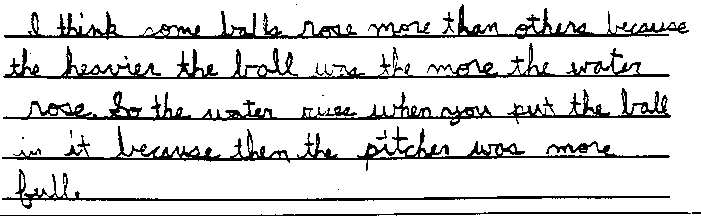 I think some balls rose more than others because
the heavier the ball was the more the water
rose. So the water rises when you put the ball
in it because then the pitcher was more
full.